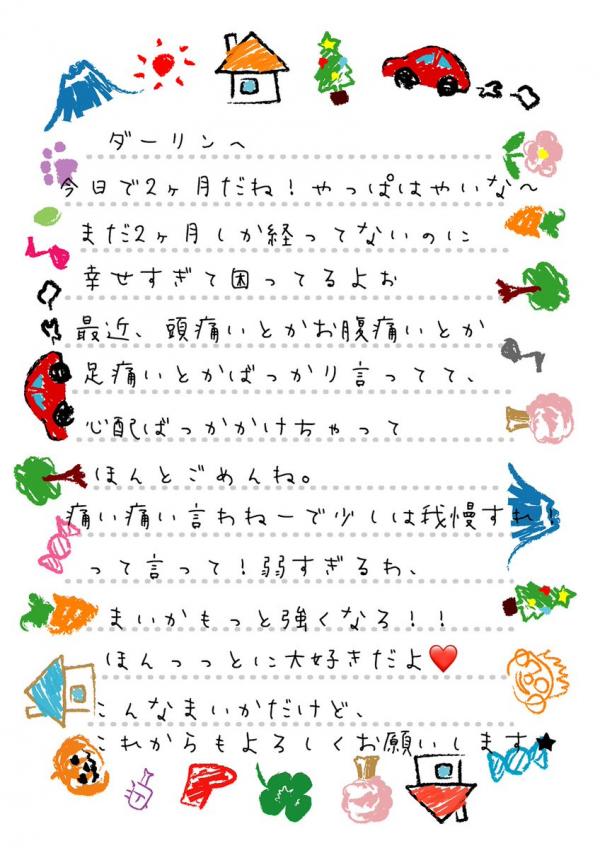 ダーリンへ
今日で2ヶ月だね！やっぱはやいな〜
まだ2ヶ月しか経ってないのに
幸せすぎて困ってるよぉ
最近、頭痛いとかお腹痛いとか
足痛いとかばっかり言ってて、
心配ばっかかけちゃって
ほんとごめんね。
痛い痛い言わねーで少しは我慢すれ！
って言って！弱すぎるわ、
まいかもっと強くなろ！！
ほんっっとに大好きだよ❤️
こんなまいかだけど、
これからもよろしくお願いします★